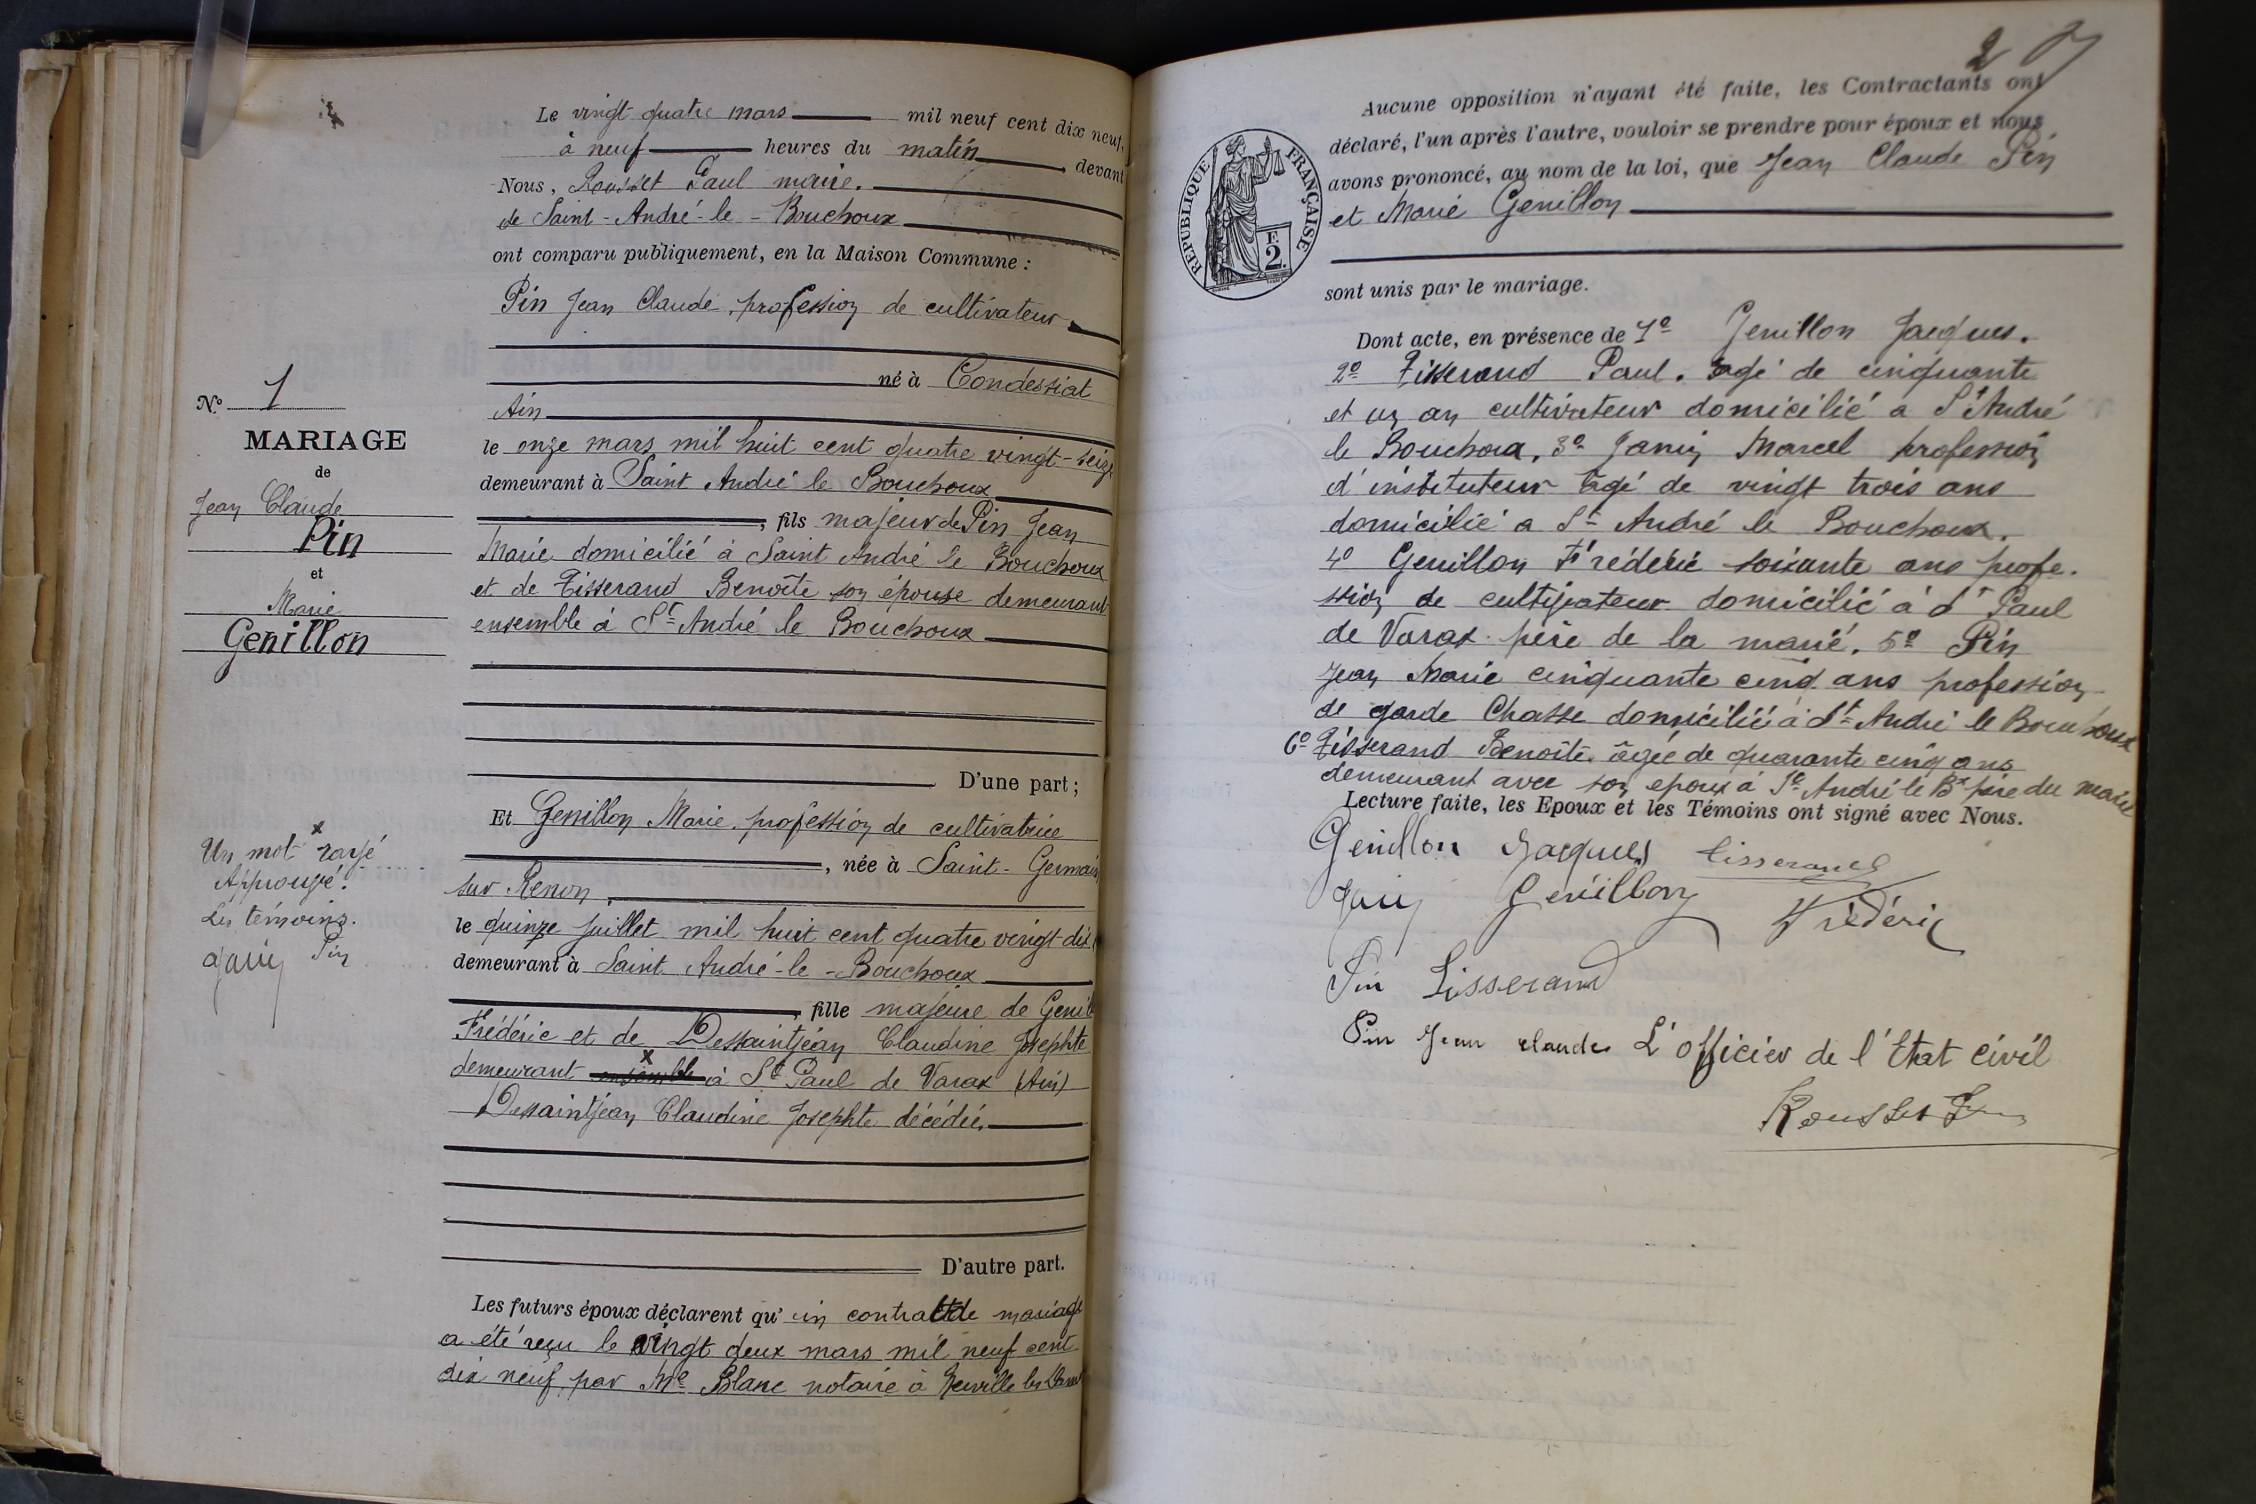 Le vingt quatre mars mil neuf cent dix neuf,
à neuf heures du matin, devant
Nous, Rousset Paul maire.
de Saint-André-le-Bouchoux
ont comparu publiquement, en la Maison Commune :
Pin Jean Claude, profession de cultivateur
né à Condessiat
Ain
le onze mars mil huit cent quatre vingt-seize
demeurant à Saint André le Bouchoux
, fils majeur de Pin Jean
Marie domicilié à Saint André le Bouchoux
et de Tisserand Benoîte son épouse demeurant
ensemble à St André le Bouchoux
D'une part ;
Et Genillon Marie, profession de cultivatrice
, née à Saint-Germain
sur Renon,
le quinze juillet mil huit cent quatre vingt dix
demeurant à Saint André-le-Bouchoux
, fille majeure de Genil
Frédéric et de Dessaintjean Claudine Josephte
demeurant ensemble x à St Paul de Varax (Ain)
Dessaintjean Claudine Josephte décédée
D'autre part.
Les futurs époux déclarent qu'un contrat de mariage
a été reçu le vingt deux mars mil neuf cent
dix neuf par Me Blanc notaire à Neuville les Dames
No 1
MARIAGE
de
Jean Claude
Pin
et
Marie
Genillon
x
Un mot rayé
Approuvé.
Les témoins.
Janin Pin
2
Aucune opposition n'ayant été faite, les Contractants ont
déclaré, l'un après l'autre, vouloir se prendre pour époux et nous
avons prononcé, au nom de la loi, que Jean Claude Pin
et Marie Genillon
sont unis par le mariage.
RÉPUBLIQUE FRANÇAISE
F.
2.
Dont acte, en présence de 1o Genillon Jacques.
2o Tisserand Paul. agé de cinquante
et un an cultivateur domicilié a St André
le Bouchoux, 3o Janin Marcel profession
d'instituteur âgé de vingt trois ans
domicilié a St André le Bouchoux.
4o Genillon Frédéric soixante ans profe-
ssion de cultivateur domicilié à St Paul
de Varax père de la marié. 5o Pin
Jean Marie cinquante cinq ans profession
de garde Chasse domicilié à St André le Bouchoux
6o Tisserand Benoîte âgée de quarante cinq ans
demeurant avec son epoux à St André le Bx père du marié
Lecture faite, les Epoux et les Témoins ont signé avec Nous.
Genillon Jacques Tisserand
Janin Genillon Frédéric
Pin Tisserand
Pin Jean claude L'officier de l'Etat civil
Rousset